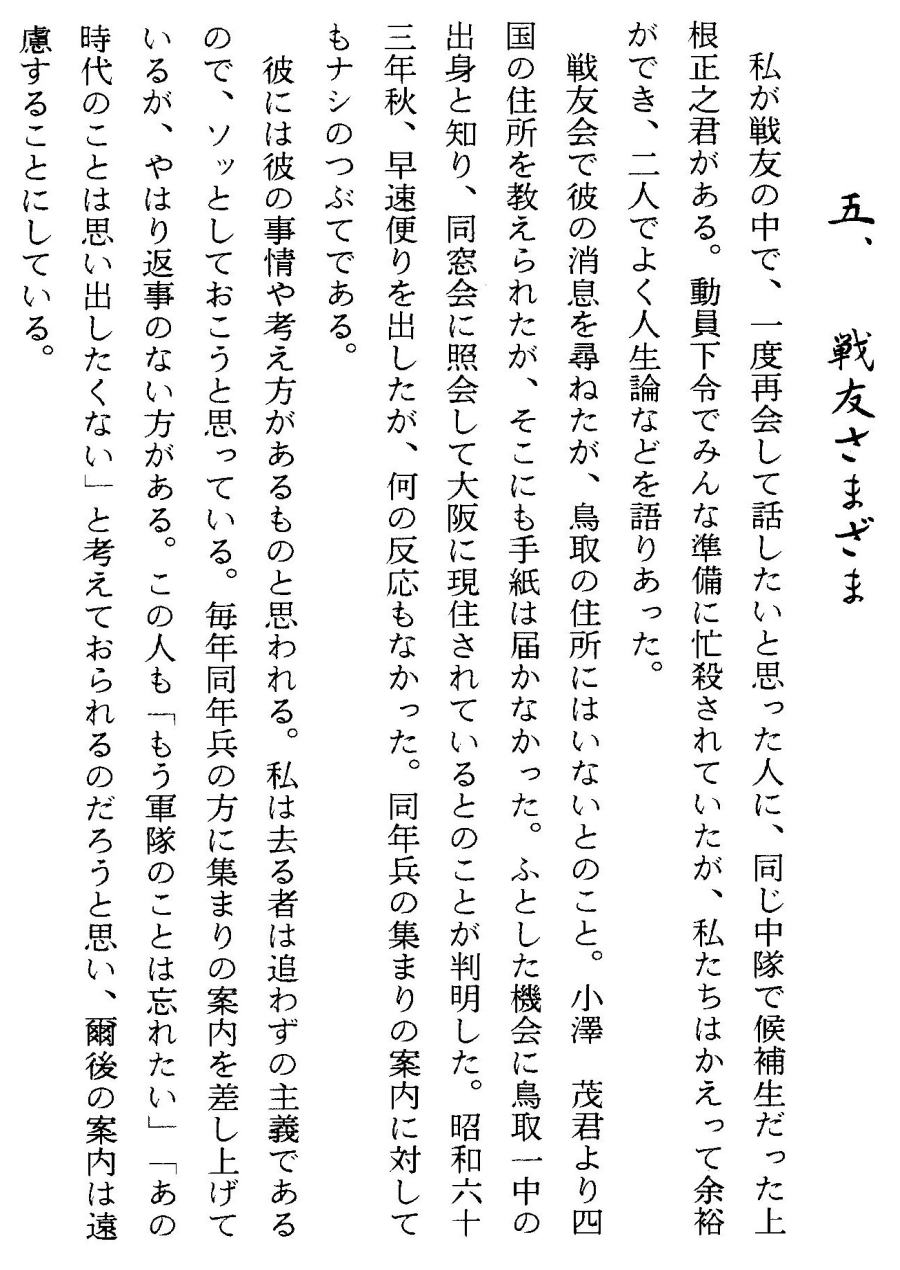 五、　戦友さまざま
　私が戦友の中で、一度再会して話したいと思った人に、同じ中隊で候補生だった上
根正之君がある。動員下令でみんな準備に忙殺されていたが、私たちはかえって余裕
ができ、二人でよく人生論などを語りあった。
　戦友会で彼の消息を尋ねたが、鳥取の住所にはいないとのこと。小澤　茂君より四
国の住所を教えられたが、そこにも手紙は届かなかった。ふとした機会に鳥取一中の
出身と知り、同窓会に照会して大阪に現住されているとのことが判明した。昭和六十
三年秋、早速便りを出したが、何の反応もなかった。同年兵の集まりの案内に対して
もナシのつぶてである。
　彼には彼の事情や考え方があるものと思われる。私は去る者は追わずの主義である
ので、ソッとしておこうと思っている。毎年同年兵の方に集まりの案内を差し上げて
いるが、やはり返事のない方がある。この人も「もう軍隊のことは忘れたい」「あの
時代のことは思い出したくない」と考えておられるのだろうと思い、爾後の案内は遠
慮することにしている。